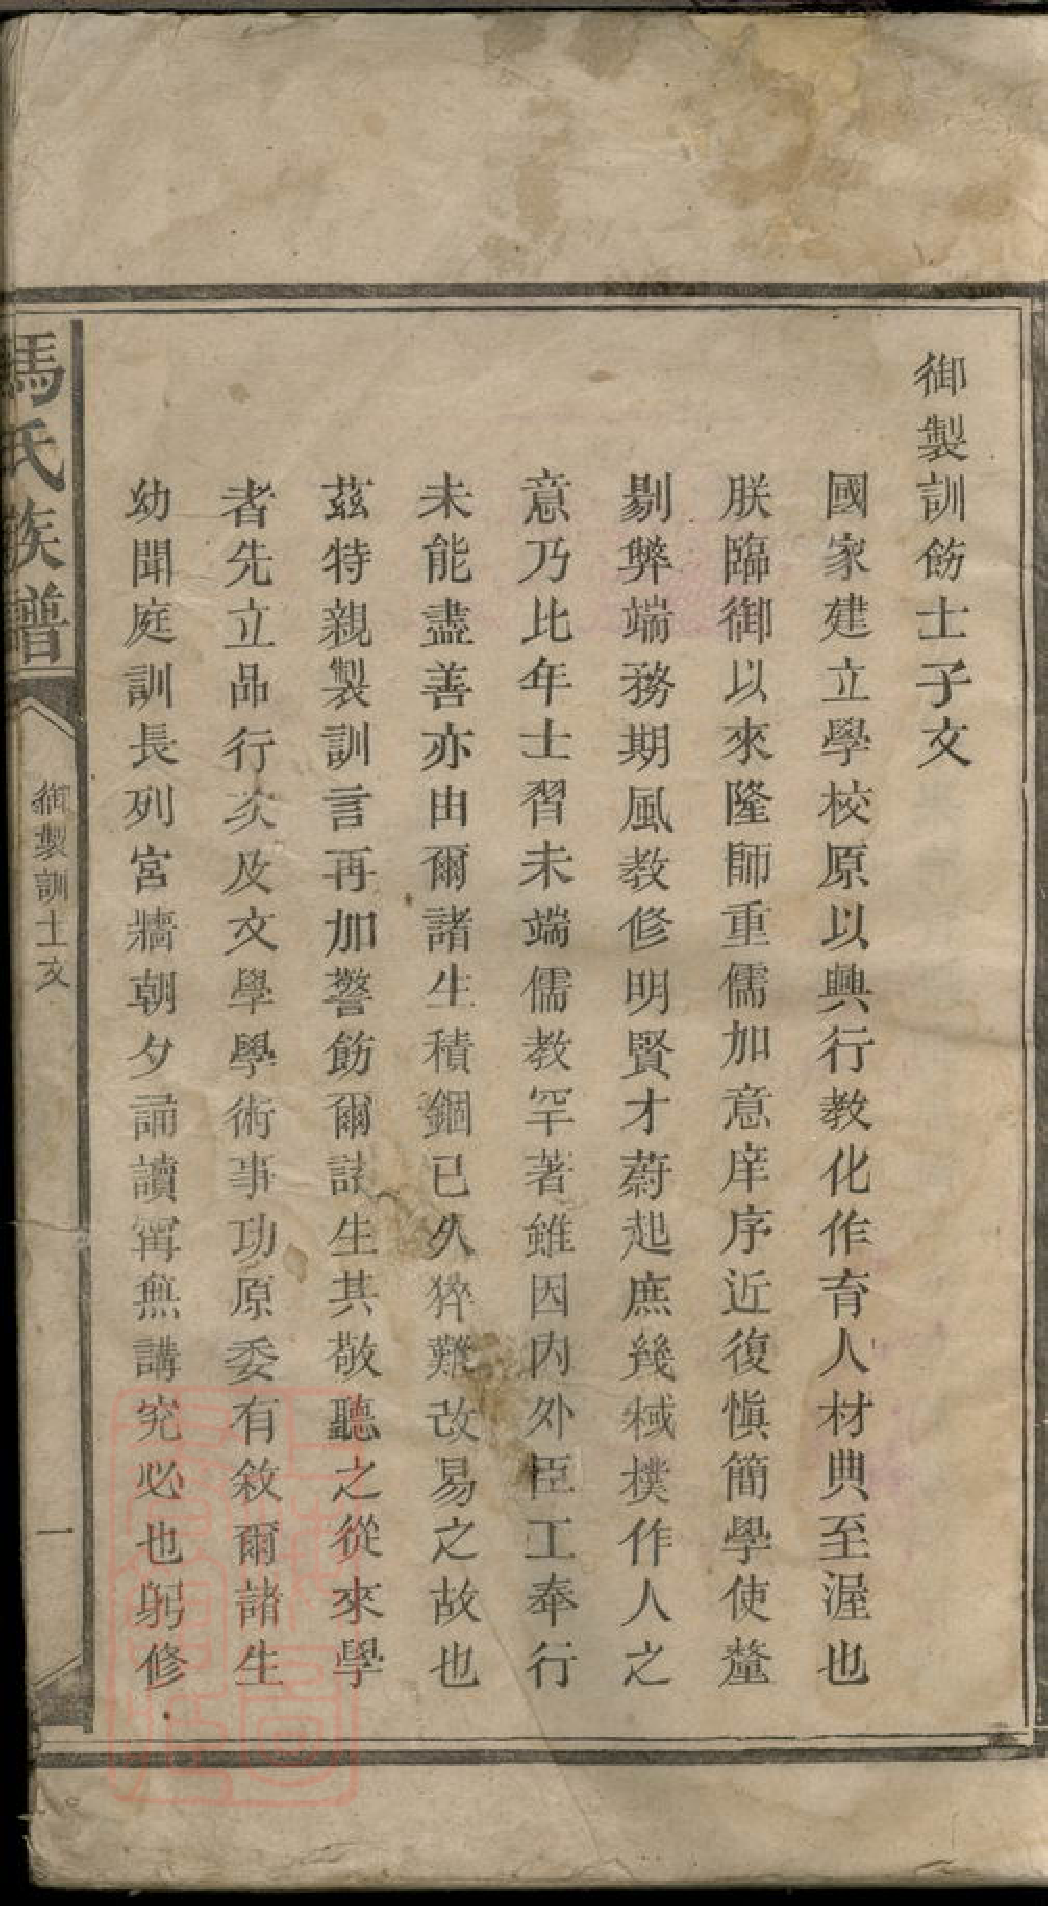 御製訓飭士子文
國家建立學校原以興行教化作育人材典至渥也
朕臨御以來隆師重儒加意庠序近復愼簡學使釐
剔弊端務期風教修明賢才蔚起庶幾棫樸作人之
意乃比年士習未端儒教罕著雖因内外臣工奉行
未能盡善亦由爾諸生積錮已久猝難改易之故也
茲特親製訓言再加警飭爾諸生其敬聽之從來學
者先立品行次及文學學術事功原委有敘爾諸生
幼聞庭訓長列宮牆朝夕誦讀寧無講究必也躬修
馮氏族譜
御製訓士文
一